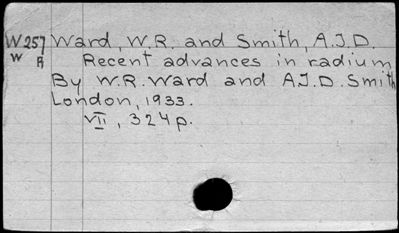 W257 Ward, W.R. and Smith, A.J.D.
W R Recent advances in radium
By W.R. Ward and A.J.D. Smith
London, 1933.
VII, 324p.